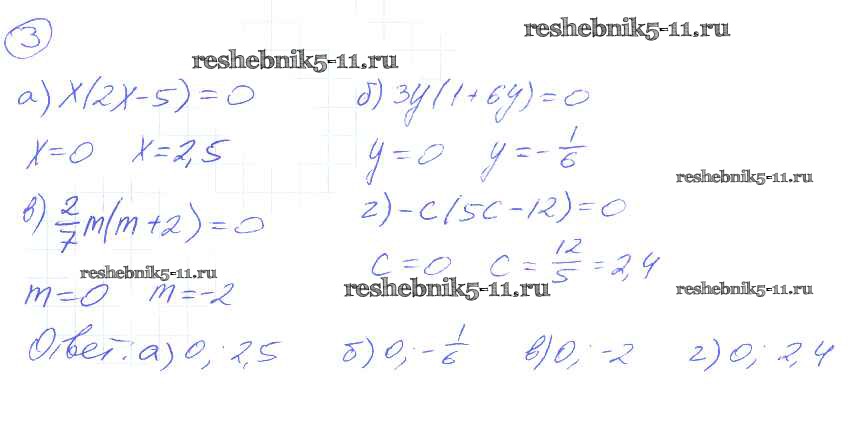 3
reshebnik5-11.ru
reshebnik5-11.ru
а) x(2x-5)=0 б) 3y(1+6y)=0
x=0 x=2,5 y=0 y=-1/6
reshebnik5-11.ru
в) 2/7 m(m+2)=0 г) -c(5c-12)=0
reshebnik5-11.ru
m=0 m=-2 c=0 c=12/5=2,4
reshebnik5-11.ru
reshebnik5-11.ru
Ответ: а) 0; 2,5 б) 0; -1/6 в) 0; -2 г) 0; 2,4